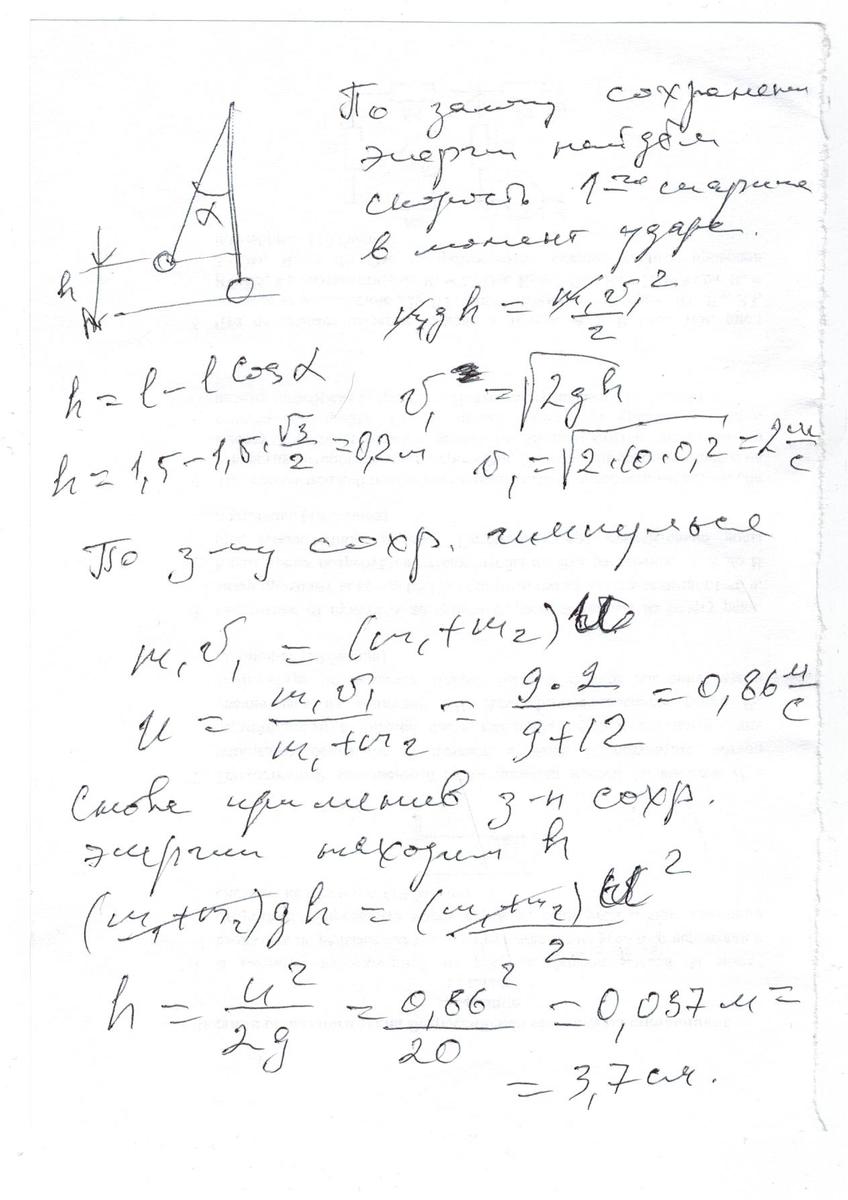 По закону сохранени
энергии найдём
скорость 1-го шарика
в момент удара.
α
h
m₁gh = m₁v₁²/2
h = l - l cos α
v₁ = √2gh
h = 1,5 - 1,5·√3/2 = 0,2 м
v₁ = √2·10·0,2 = 2 м/с
По з-ну сохр. импульса
m₁v₁ = (m₁+m₂)u
u = m₁v₁/m₁+m₂ = 9·2/9+12 = 0,86 м/с
Снова применив з-н сохр.
энергии находим h
(m₁+m₂)gh = (m₁+m₂)u²/2
h = u²/2g = 0,86²/20 = 0,037 м =
= 3,7 см.